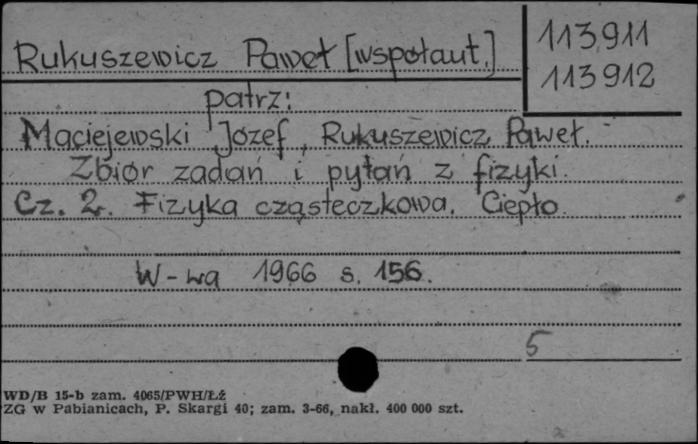 Rukuszewicz Paweł [współaut.]
113911
113912
patrz:
Maciejewski Józef, Rukuszewicz Paweł.
Zbiór zadań i pytań z fizyki.
Cz. 2. Fizyka cząsteczkowa. Ciepło.
W-wa 1966 s. 156.
5
WD/B 15-b zam. 4065/PWH/Łż
ZG w Pabianicach, P. Skargi 40; zam. 3-66, nakł. 400 000 szt.